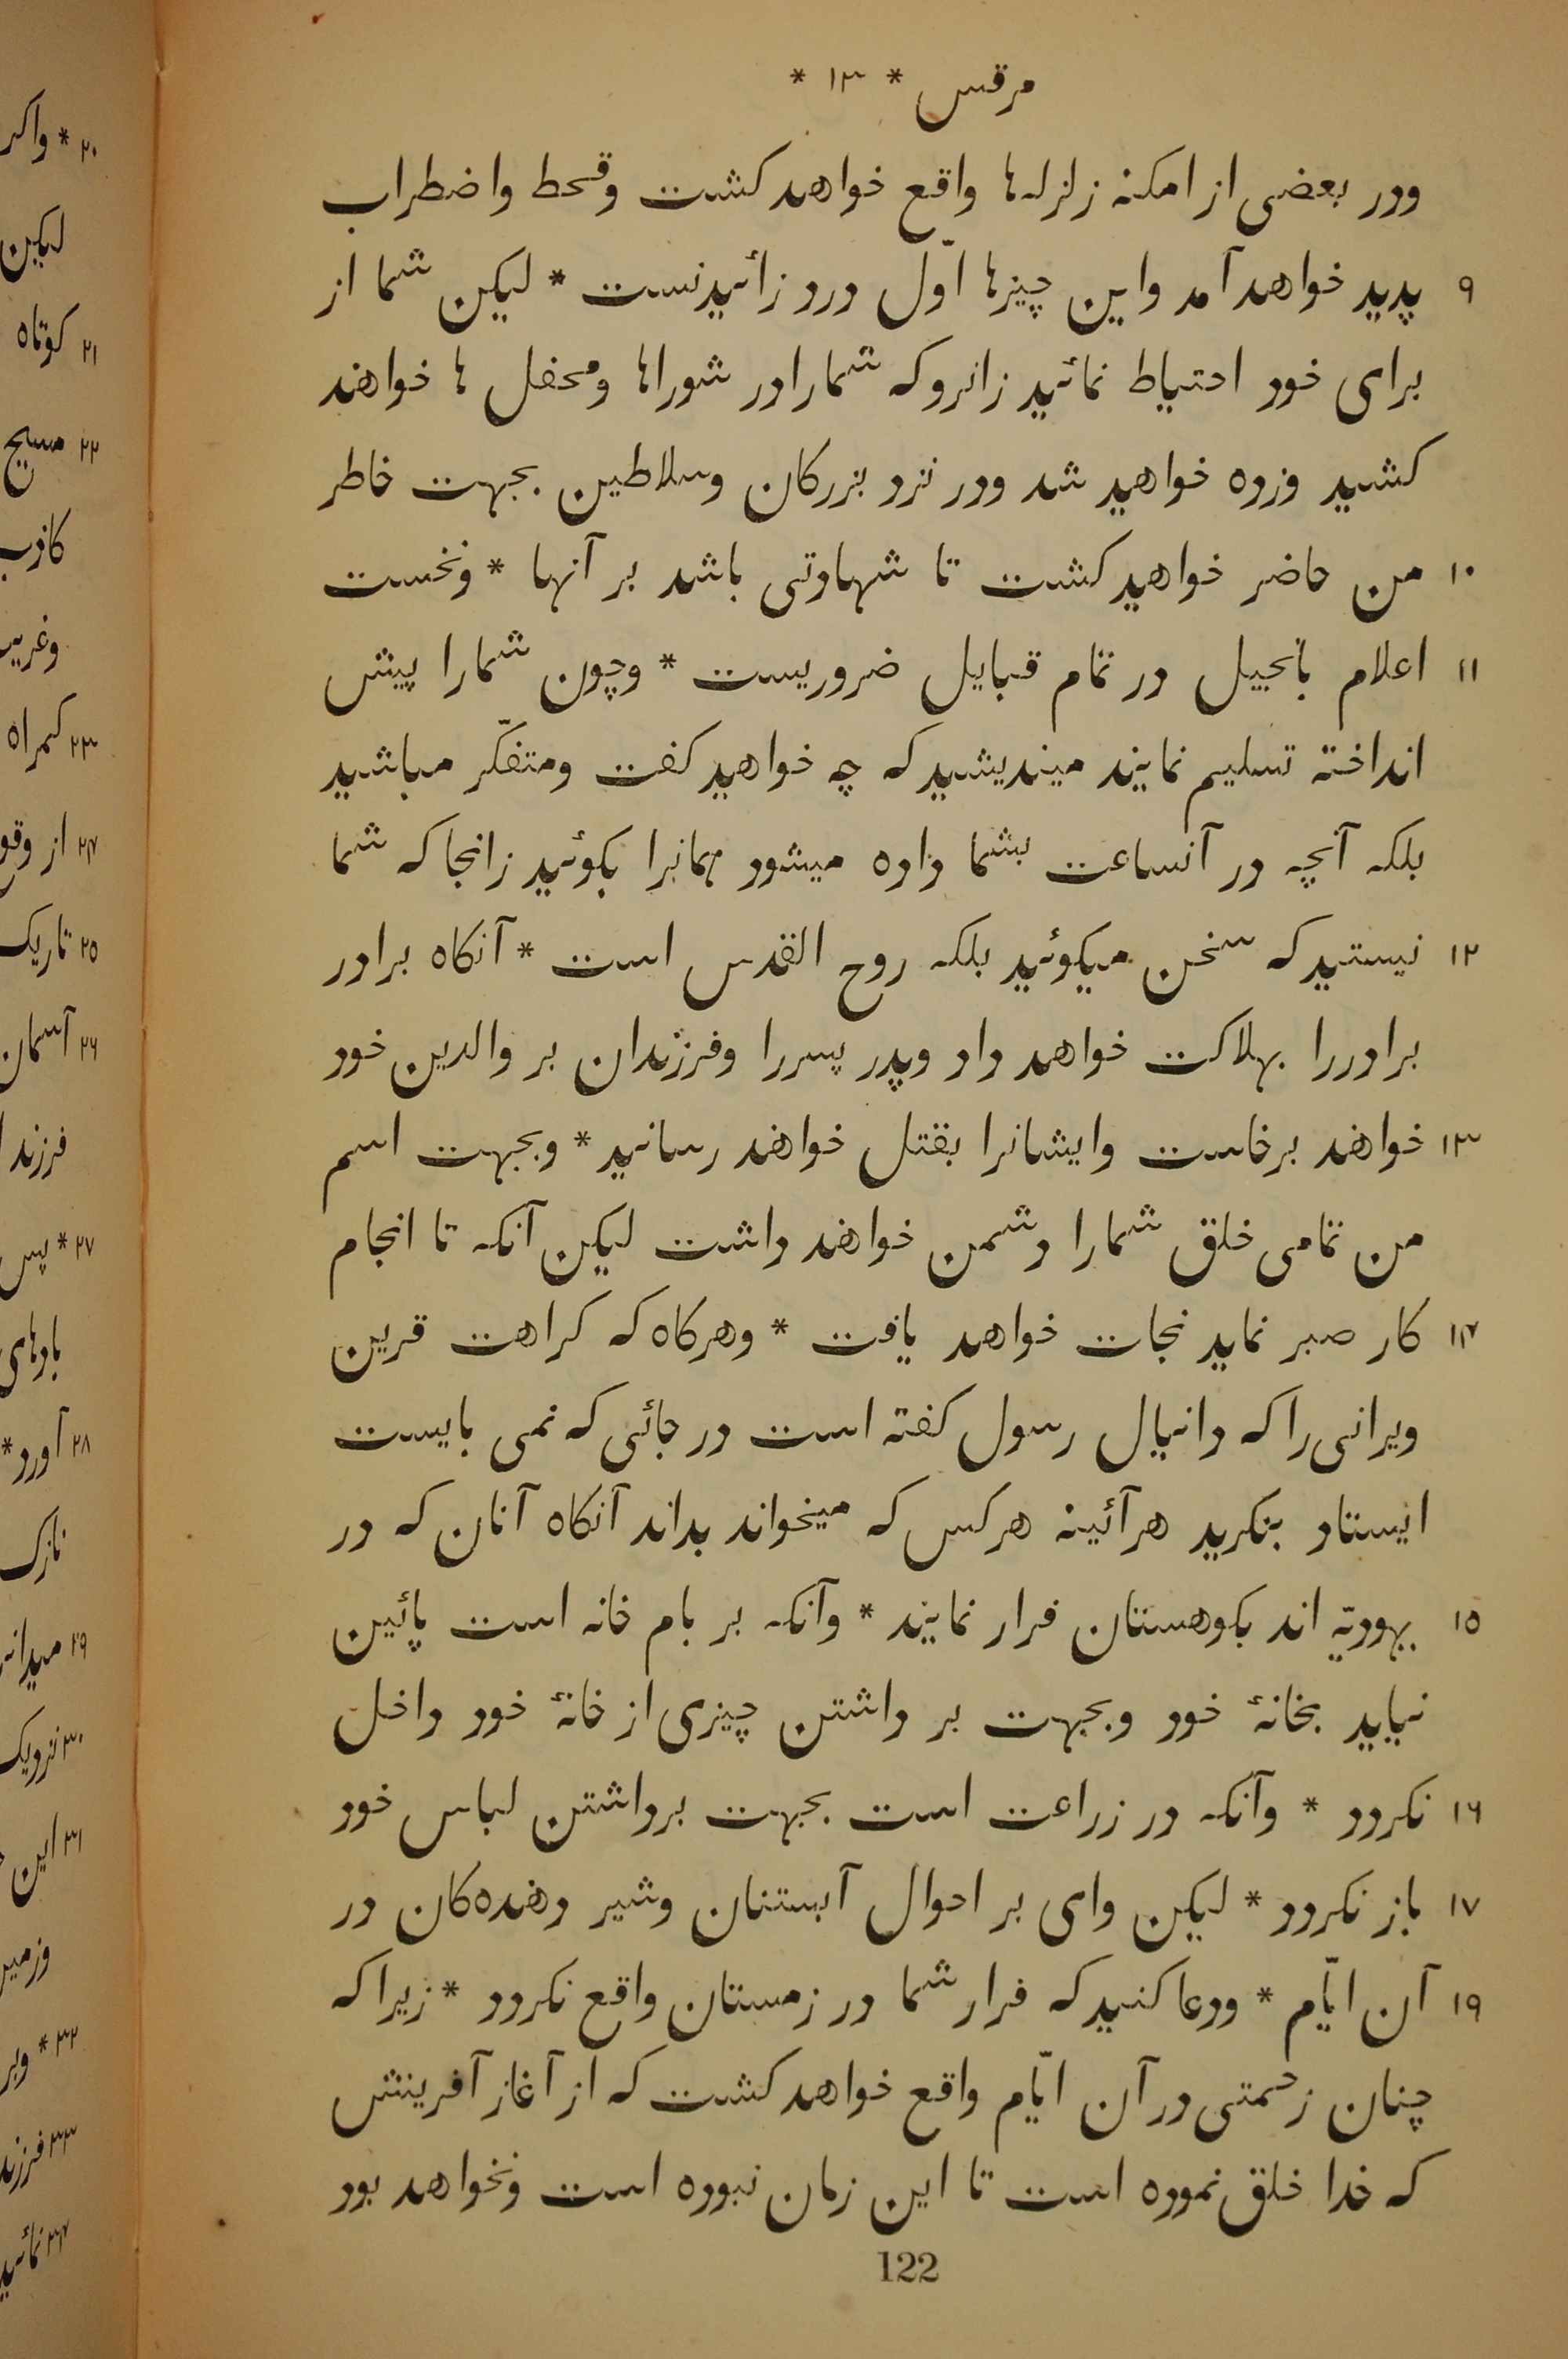 مرقس * ۱۳ *
ودر بعضی از امکنه زلزله‌ها واقع خواهد کشت وقحط واضطراب
۹ پدید خواهد آمد واین چیزها اوّل درد زائیدنست * لیکن شما از
برای خود احتیاط نمائید زانرو که شمارا در شوراها ومحفل ها خواهند
کشید وزده خواهید شد ودر نزد بزرکان وسلاطین بجهت خاطر
۱۰ من حاضر خواهید کشت تا شهادتی باشد بر آنها * ونخست
۱۱ اعلام بانجیل در تمام قبایل ضروریست * وچون شمارا پیش
انداخته تسلیم نمایند میندیشید که چه خواهید کفت ومتفکّر مباشید
بلکه آنچه در آنساعت بشما داده میشود همانرا بکوئید زانجا که شما
۱۲ نیستید که سخن میکوئید بلکه روح القدس است * آنکاه برادر
برادررا بهلاکت خواهد داد وپدر پسررا وفرزندان بر والدین خود
۱۳ خواهند برخاست وایشانرا بقتل خواهند رسانید * وبجهت اسم
من تمامی خلق شمارا دشمن خواهند داشت لیکن آنکه تا انجام
۱۴ کار صبر نماید نجات خواهد یافت * وهرکاه که کراهت قرین
ویرانی را که دانیال رسول کفته است در جائی که نمی بایست
ایستاد بنکرید هرآئینه هرکس که میخواند بداند آنکاه آنان که در
۱۵ یهودیّه اند بکوهستان فرار نمایند * وآنکه بر بام خانه است پائین
نیاید بخانهٔ خود وبجهت بر داشتن چیزی از خانهٔ خود داخل
۱۶ نکردد * وآنکه در زراعت است بجهت برداشتن لباس خود
۱۷ باز نکردد * لیکن وای بر احوال آبستنان وشیر دهنده‌کان در
۱۹ آن ایّام * ودعا کنید که فرار شما در زمستان واقع نکردد * زیرا که
چنان زحمتی در آن ایّام واقع خواهد کشت که از آغاز آفرینش
که خدا خلق نموده است تا این زمان نبوده است ونخواهد بود
122
۲۰ * واکر
لیکن
۲۱ کوتاه
۲۲ مسیح
کاذب
۲۳ کمراه
۲۴ از
۲۵ تاریک
۲۶ آسمان
۲۷ * پس
بادهای
۲۸ آورد *
نازک
۲۹
۳۰ نزدیک
۳۱ این
۳۲ * وبر
۳۳
۳۴ نمائید